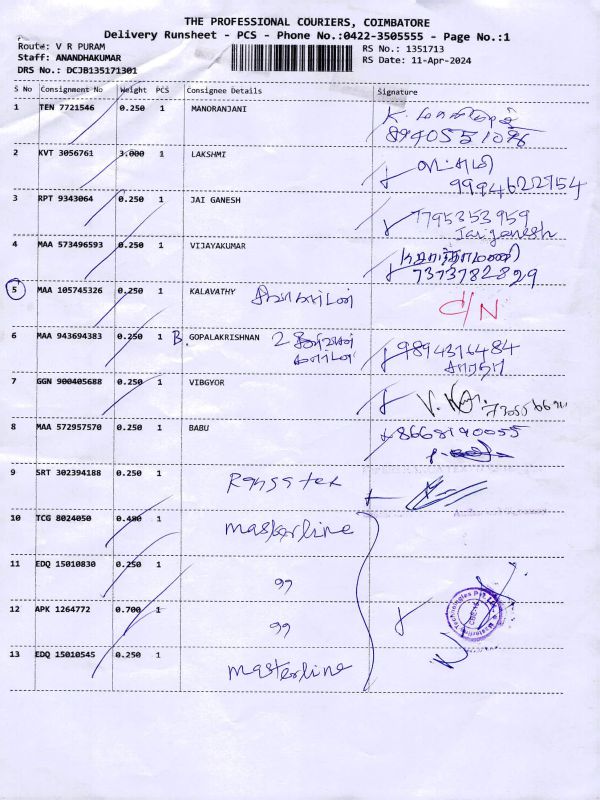 THE PROFESSIONAL COURIERS, COIMBATORE
Delivery Runsheet - PCS - Phone No.:0422-3505555 - Page No.:1
Route: V R PURAM
RS No.: 1351713
Staff: ANANDHAKUMAR
RS Date: 11-Apr-2024
DRS No.: DCJB135171301
S No Consignment No Weight PCS Consignee Details Signature
1 TEN 7721546 0.250 1 MANORANJANI K.
8940551096
2 KVT 3056761 3.000 1 LAKSHMI லட்சுமி
9994622754
3 RPT 9343064 0.250 1 JAI GANESH 7795353959
Jaiganesh
4 MAA 573496593 0.250 1 VIJAYAKUMAR
7373782829
5 MAA 105745326 0.250 1 KALAVATHY C/N
6 MAA 943694383 0.250 1 B GOPALAKRISHNAN 2 9894316484
7 GGN 900405688 0.250 1 VIBGYOR V.
8 MAA 572957570 0.250 1 BABU 8668190055
9 SRT 302394188 0.250 1
10 TCG 8024050 0.480 1 masterline
11 EDQ 15010830 0.250 1 99
12 APK 1264772 0.700 1 99
13 EDQ 15010545 0.250 1 masterline